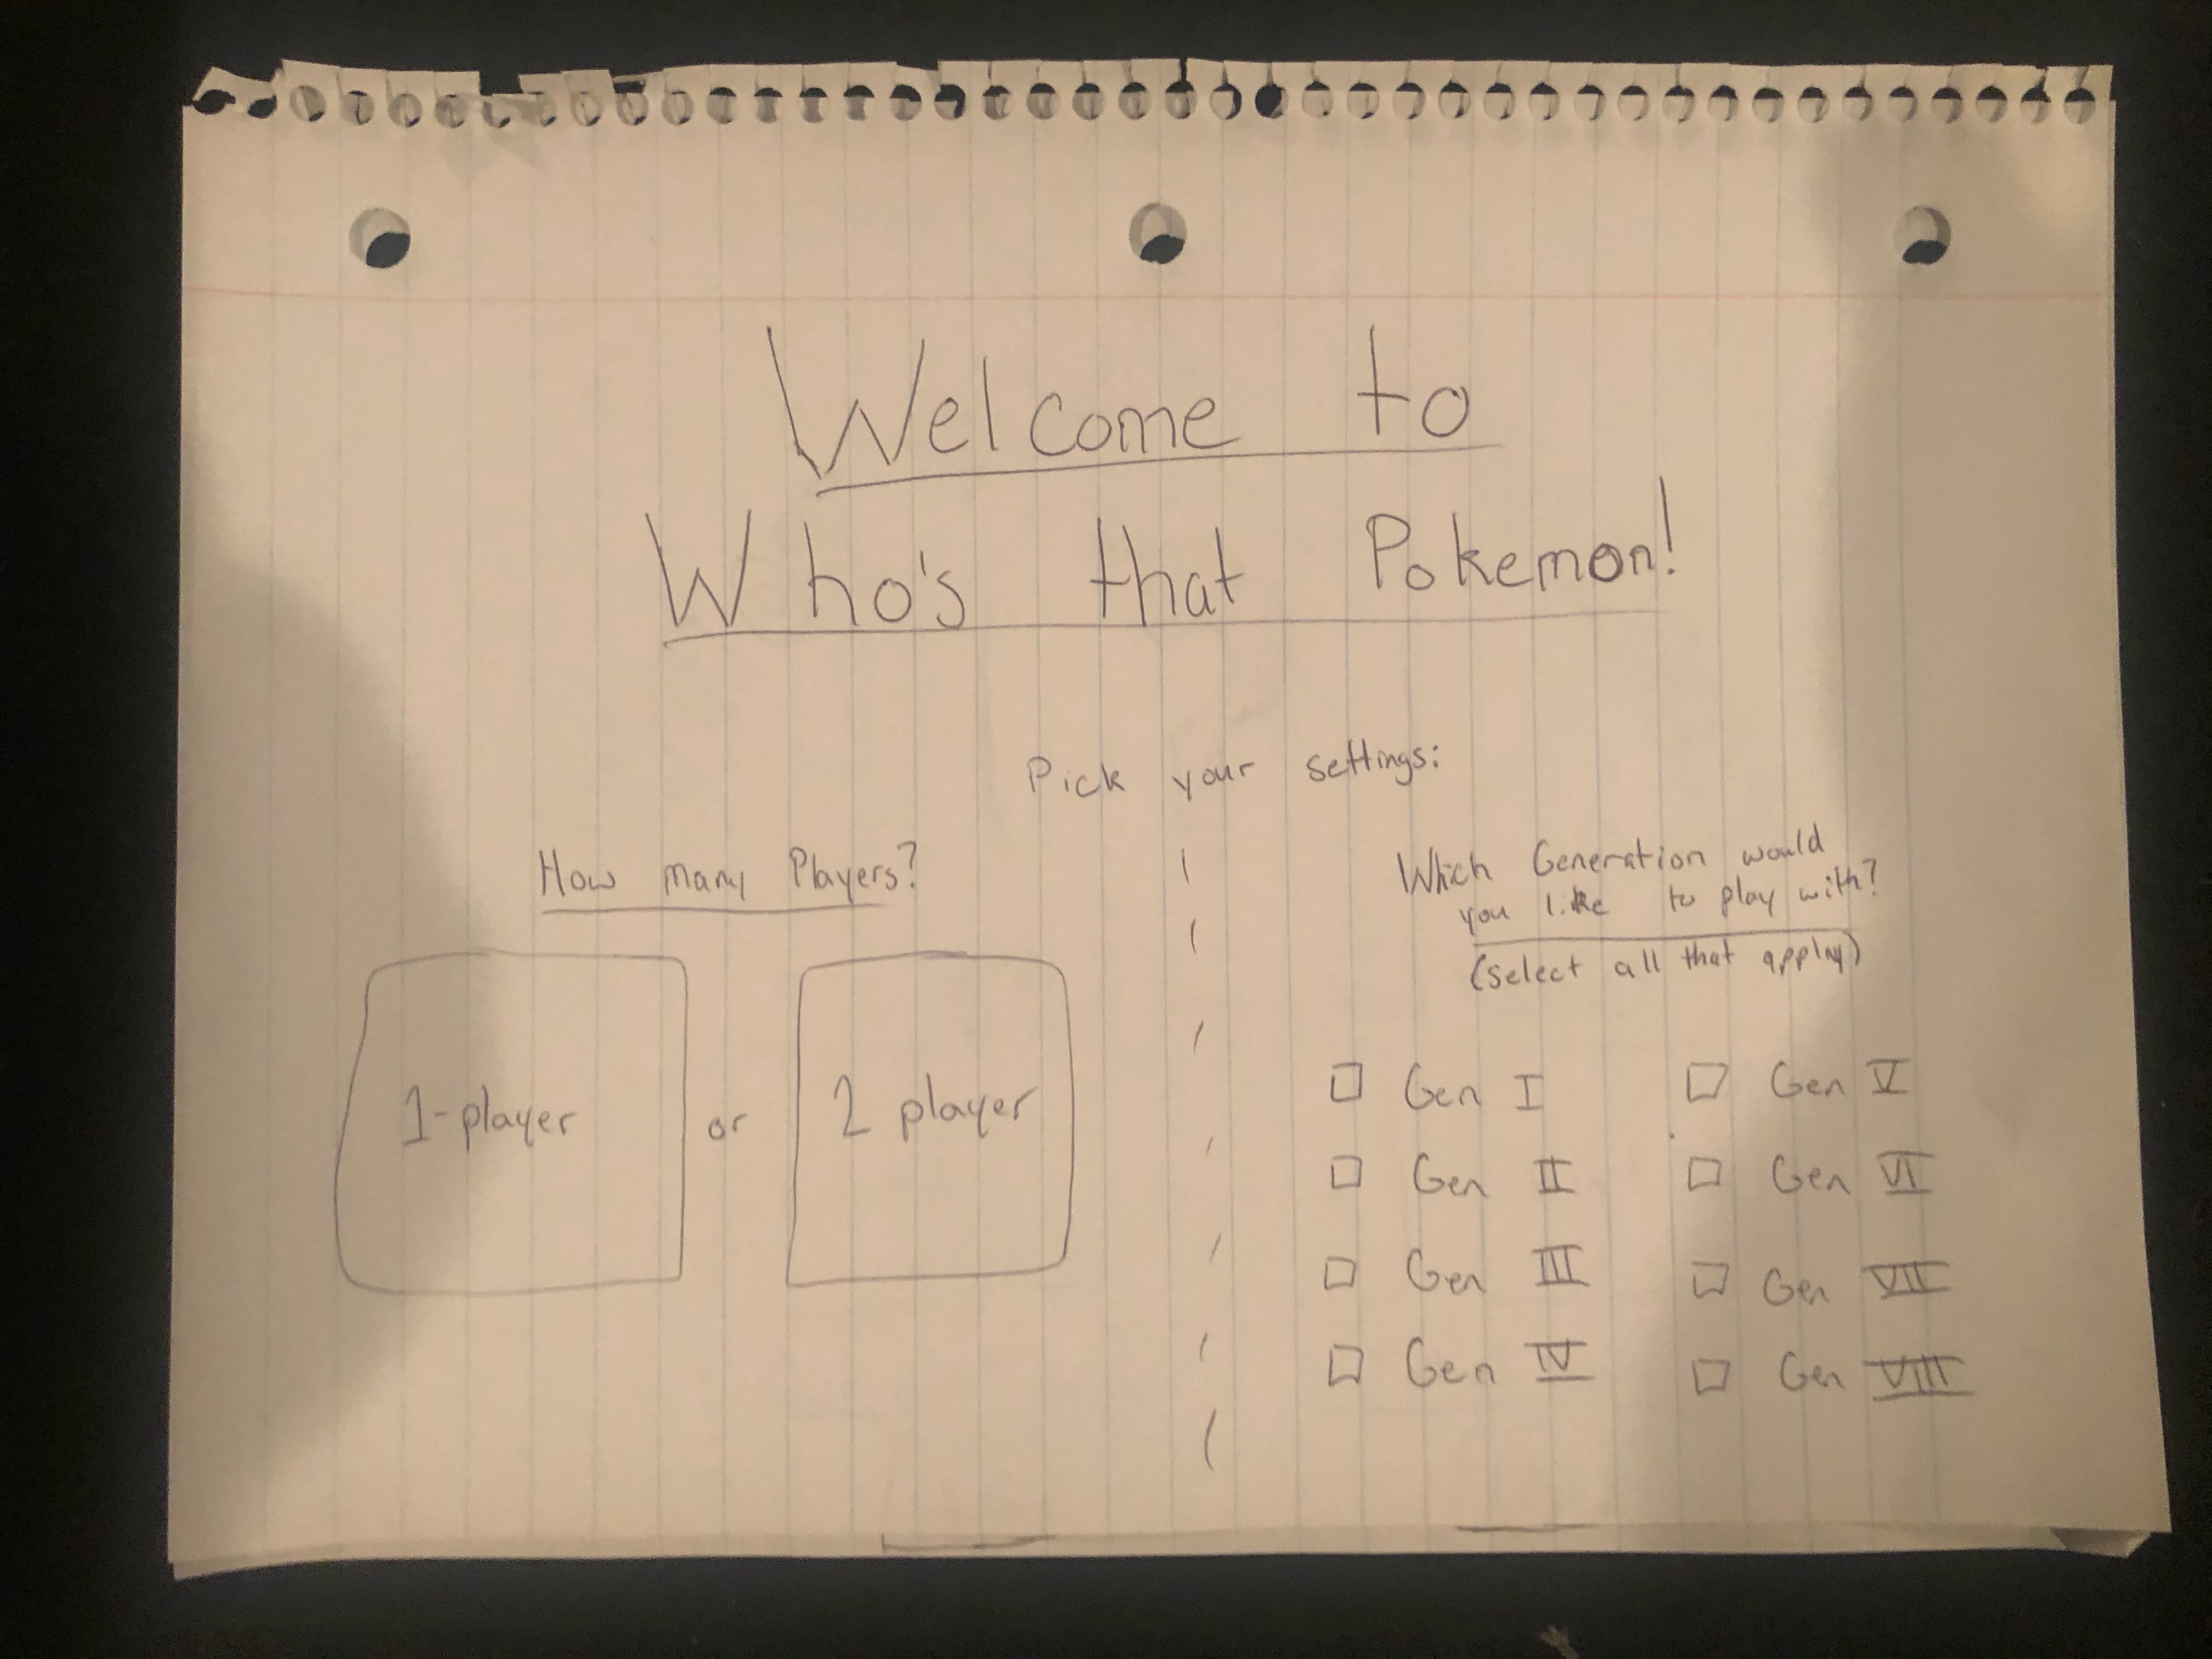 Welcome to
Who's that Pokemon!
Pick your settings:
How many Players?
1-player
or
2 player
Which Generation would
you like to play with?
(select all that apply)
Gen I
Gen II
Gen III
Gen IV
Gen V
Gen VI
Gen VII
Gen VIII